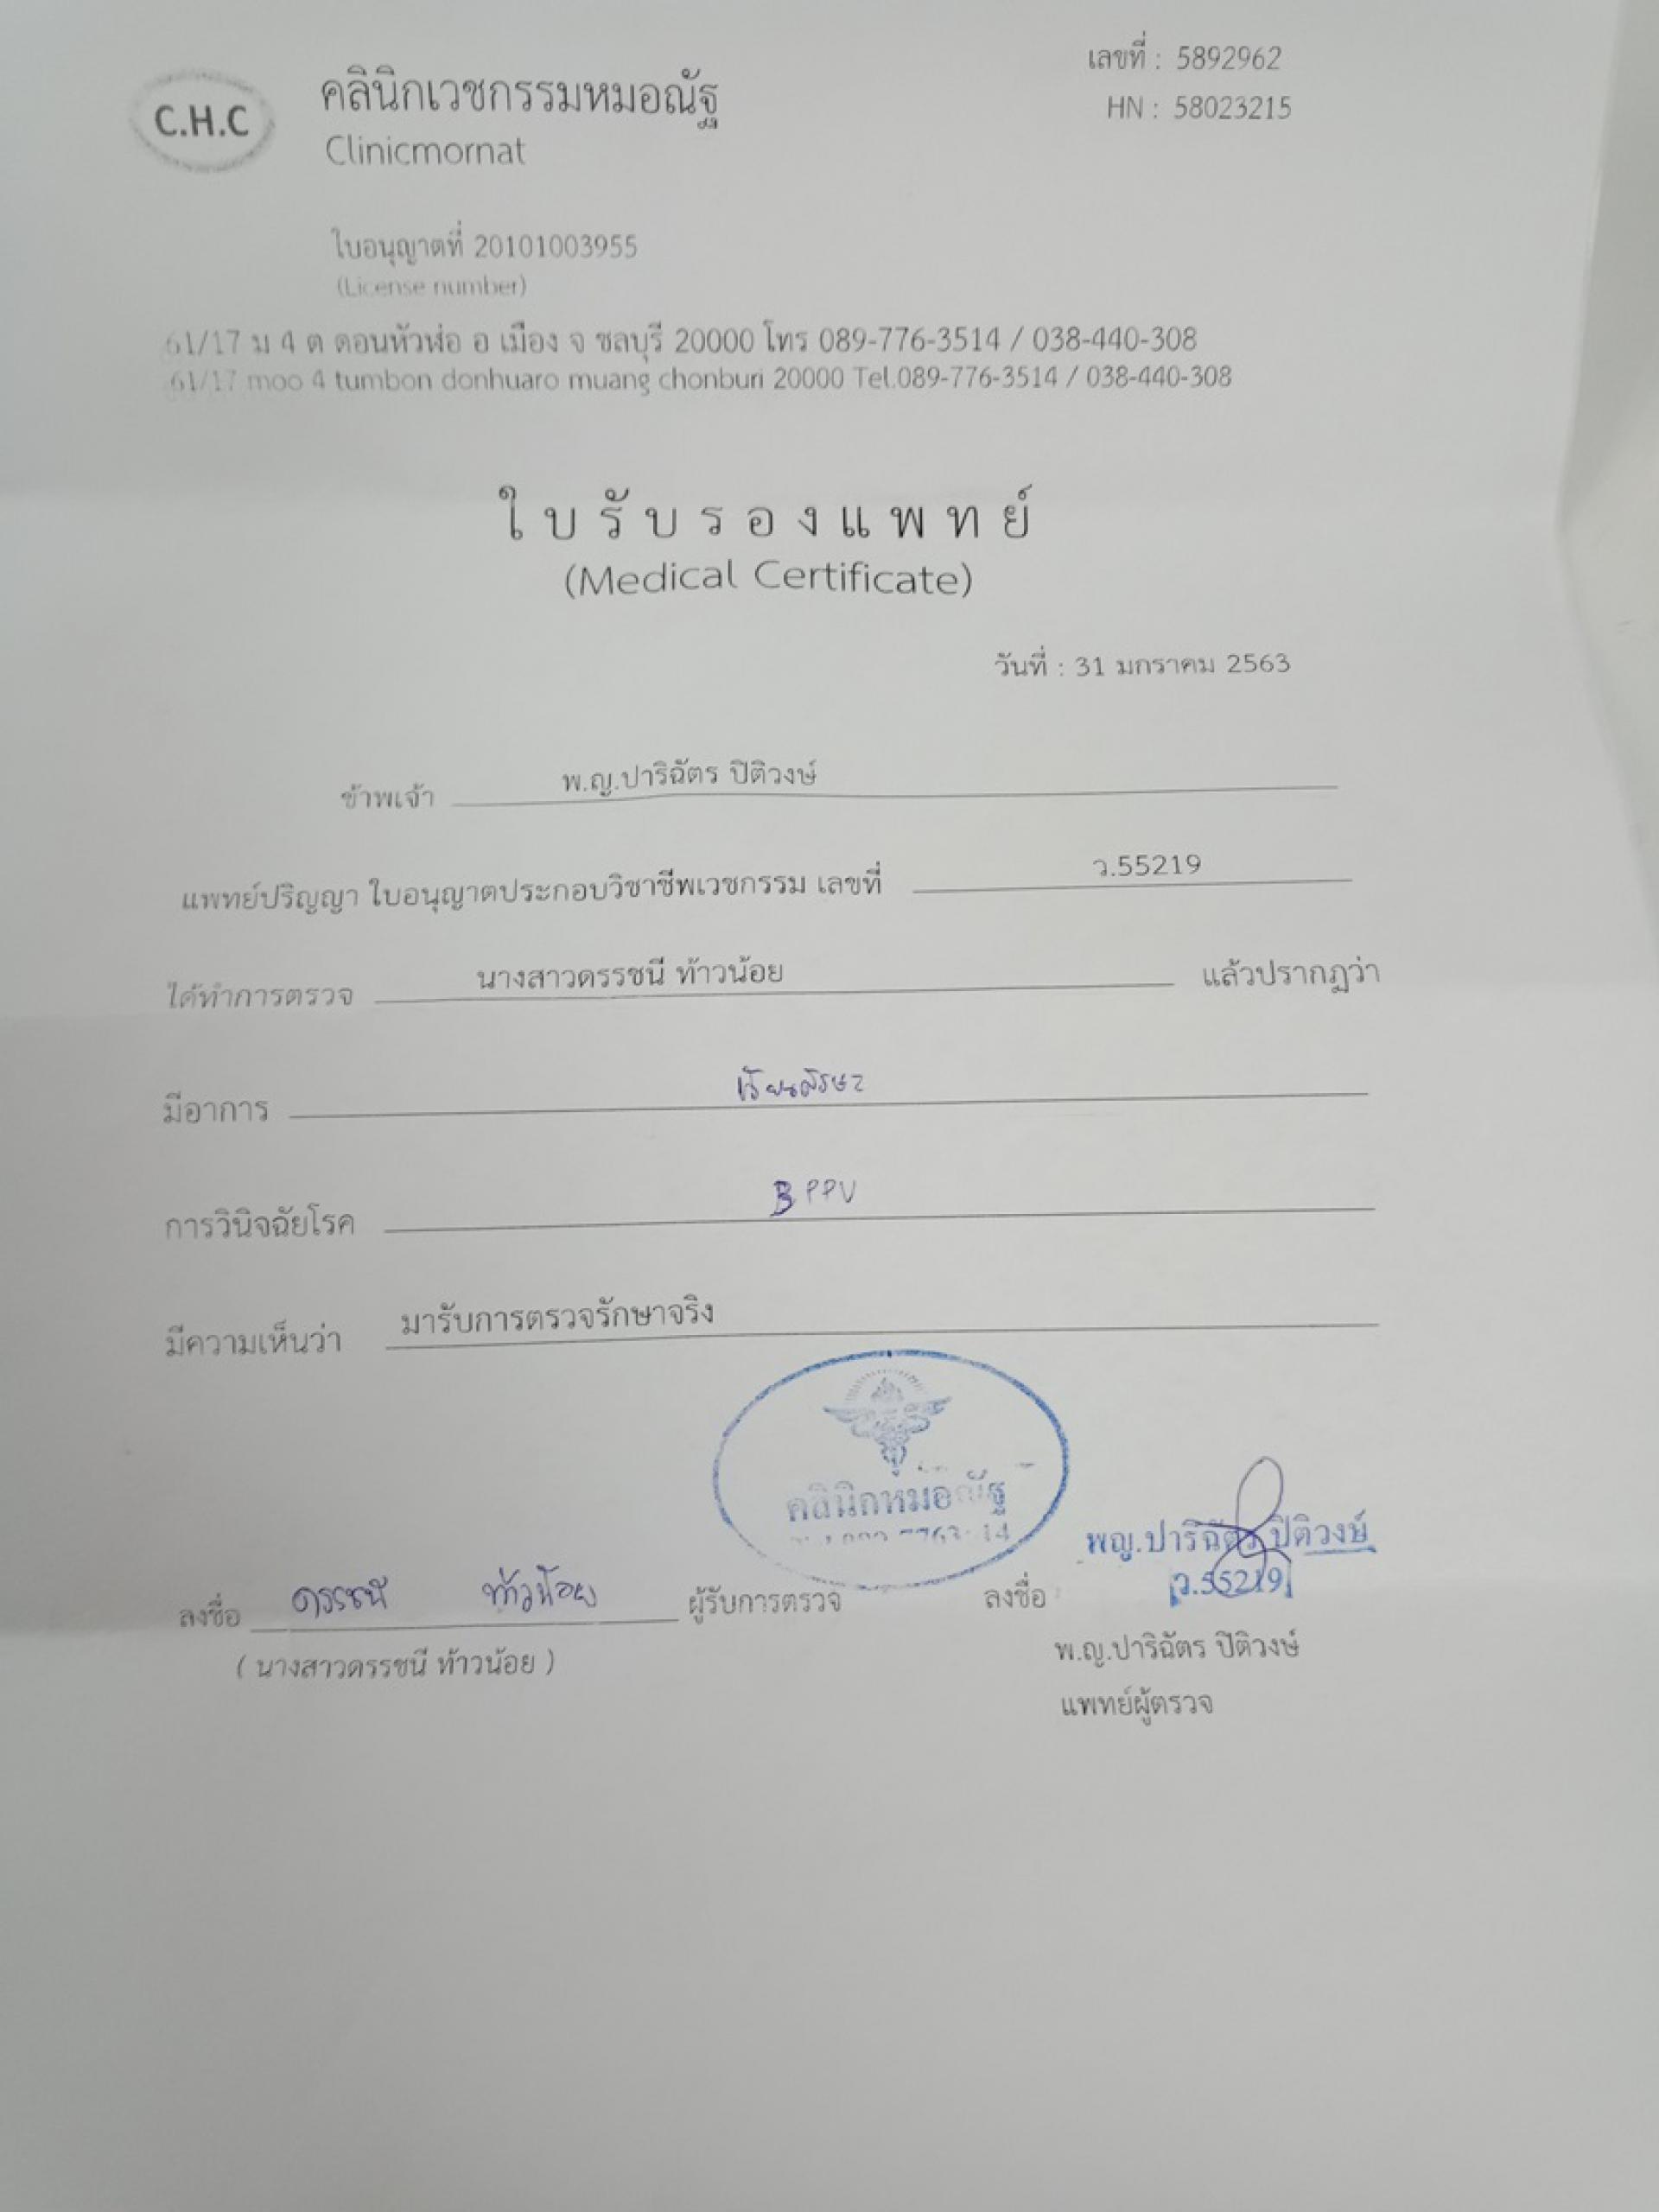 C.H.C
คลินิกเวชกรรมหมอณัฐ
Clinicmornat
เลขที่ : 5892962
HN : 58023215
ใบอนุญาตที่ 20101003955
(License number)
61/17 ม 4 ต ดอนหัวฬ่อ อ เมือง จ ชลบุรี 20000 โทร 089-776-3514 / 038-440-308
61/17 moo 4 tumbon donhuaro muang chonburi 20000 Tel.089-776-3514 / 038-440-308
ใบรับรองแพทย์
(Medical Certificate)
วันที่ : 31 มกราคม 2563
ข้าพเจ้า พ.ญ.ปาริฉัตร ปิติวงษ์
แพทย์ปริญญา ใบอนุญาตประกอบวิชาชีพเวชกรรม เลขที่ ว.55219
ได้ทำการตรวจ นางสาวดรรชนี ท้าวน้อย แล้วปรากฏว่า
มีอาการ เวียนศีรษะ
การวินิจฉัยโรค BPPV
มีความเห็นว่า มารับการตรวจรักษาจริง
คลินิกหมอณัฐ
พญ.ปาริฉัตร ปิติวงษ์
ว.55219
ลงชื่อ ดรรชนี ท้าวน้อย ผู้รับการตรวจ ลงชื่อ
(นางสาวดรรชนี ท้าวน้อย)
พ.ญ.ปาริฉัตร ปิติวงษ์
แพทย์ผู้ตรวจ